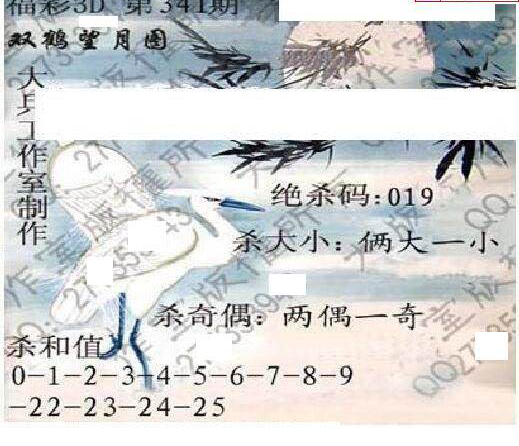 福彩3D 第341期
双鹤望月图
大兵工作室制作
绝杀码:019
杀大小: 俩大一小
杀奇偶: 两偶一奇
杀和值
0-1-2-3-4-5-6-7-8-9
-22-23-24-25